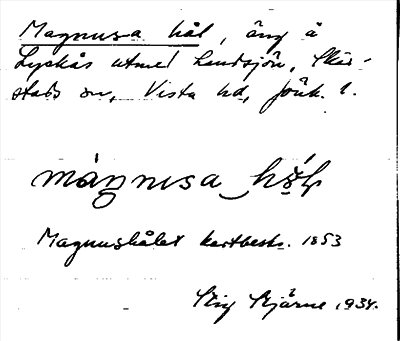 Magnusa hål, äng å
Lyckås utmed Landsjön, Skär-
stads sn, Vista hd, Jönk. l.
màŋnusa hɔ́l
Magnushålet kartbeskr. 1853
Stig Bjärne 1934.